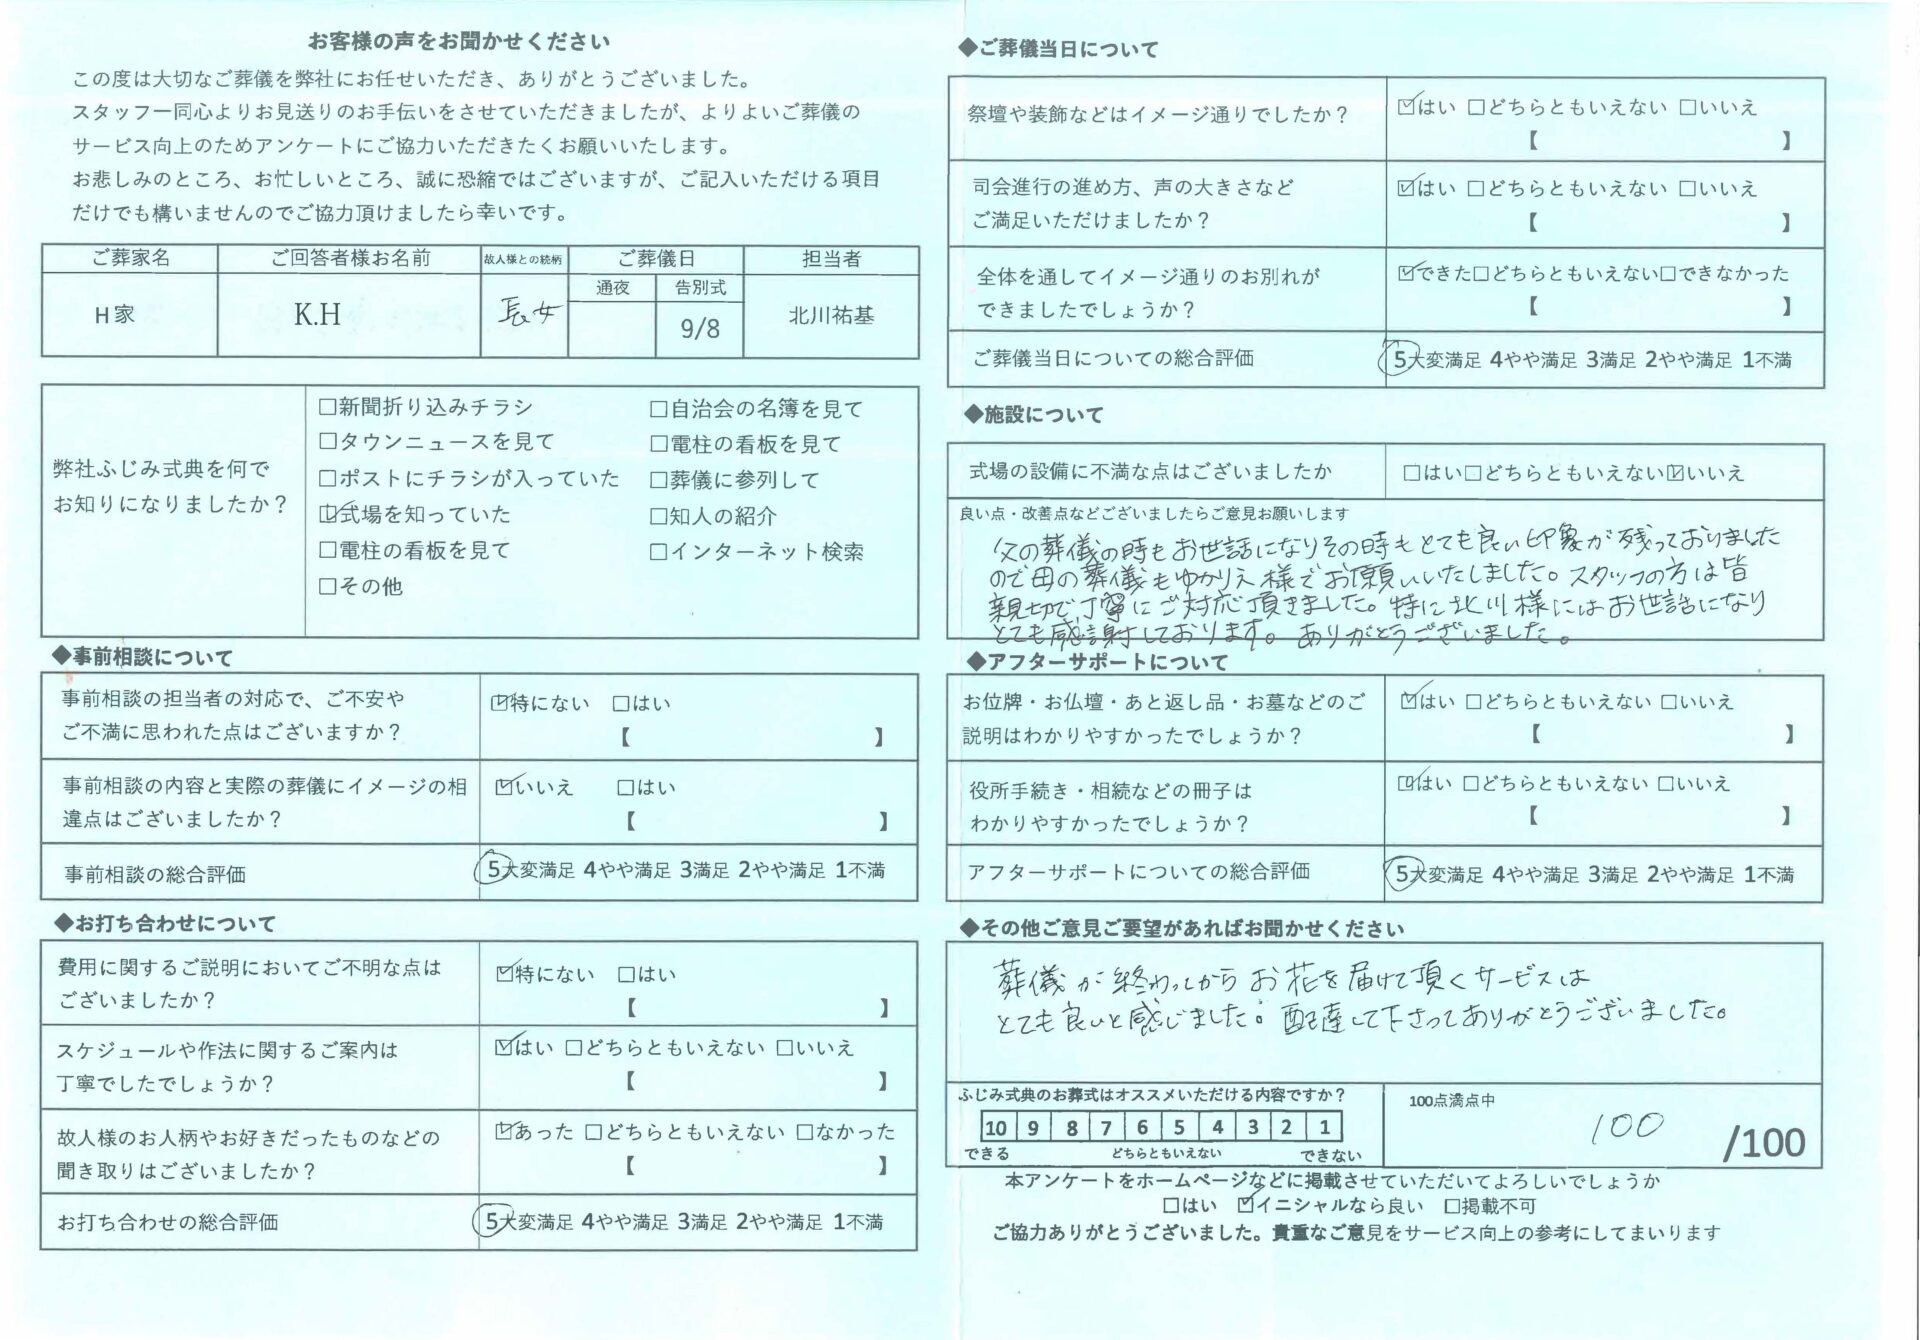 お客様の声をお聞かせください
この度は大切なご葬儀を弊社にお任せいただき、ありがとうございました。
スタッフ一同心よりお見送りのお手伝いをさせていただきましたが、よりよいご葬儀の
サービス向上のためアンケートにご協力いただきたくお願いいたします。
お悲しみのところ、お忙しいところ、誠に恐縮ではございますが、ご記入いただける項目
だけでも構いませんのでご協力頂けましたら幸いです。
ご葬家名 ご回答者様お名前 故人様との続柄 ご葬儀日 担当者
通夜 告別式
H家 K.H 長女 9/8 北川祐基
弊社ふじみ式典を何で
お知りになりましたか？
□新聞折り込みチラシ □自治会の名簿を見て
□タウンニュースを見て □電柱の看板を見て
□ポストにチラシが入っていた □葬儀に参列して
☑式場を知っていた □知人の紹介
□電柱の看板を見て □インターネット検索
□その他
◆事前相談について
事前相談の担当者の対応で、ご不安や
ご不満に思われた点はございますか？
☑特にない □はい
【 】
事前相談の内容と実際の葬儀にイメージの相
違点はございましたか？
☑いいえ □はい
【 】
事前相談の総合評価 5大変満足 4やや満足 3満足 2やや満足 1不満
◆お打ち合わせについて
費用に関するご説明においてご不明な点は
ございましたか？
☑特にない □はい
【 】
スケジュールや作法に関するご案内は
丁寧でしたでしょうか？
☑はい □どちらともいえない □いいえ
【 】
故人様のお人柄やお好きだったものなどの
聞き取りはございましたか？
☑あった □どちらともいえない □なかった
【 】
お打ち合わせの総合評価 5大変満足 4やや満足 3満足 2やや満足 1不満
◆ご葬儀当日について
祭壇や装飾などはイメージ通りでしたか？
☑はい □どちらともいえない □いいえ
【 】
司会進行の進め方、声の大きさなど
ご満足いただけましたか？
☑はい □どちらともいえない □いいえ
【 】
全体を通してイメージ通りのお別れが
できましたでしょうか？
☑できた□どちらともいえない□できなかった
【 】
ご葬儀当日についての総合評価 5大変満足 4やや満足 3満足 2やや満足 1不満
◆施設について
式場の設備に不満な点はございましたか □はい□どちらともいえない☑いいえ
良い点・改善点などございましたらご意見お願いします
父の葬儀の時もお世話になりその時もとても良い印象が残っておりました
ので母の葬儀もゆかりえ様でお願いいたしました。スタッフの方は皆
親切で丁寧にご対応頂きました。特に北川様にはお世話になり
とても感謝しております。ありがとうございました。
◆アフターサポートについて
お位牌・お仏壇・あと返し品・お墓などのご
説明はわかりやすかったでしょうか？
☑はい □どちらともいえない □いいえ
【 】
役所手続き・相続などの冊子は
わかりやすかったでしょうか？
☑はい □どちらともいえない □いいえ
【 】
アフターサポートについての総合評価 5大変満足 4やや満足 3満足 2やや満足 1不満
◆その他ご意見ご要望があればお聞かせください
葬儀が終わってからお花を届けて頂くサービスは
とても良いと感じました。配達して下さってありがとうございました。
ふじみ式典のお葬式はオススメいただける内容ですか？
10 9 8 7 6 5 4 3 2 1
できる どちらともいえない できない
100点満点中
100 /100
本アンケートをホームページなどに掲載させていただいてよろしいでしょうか
□はい ☑イニシャルなら良い □掲載不可
ご協力ありがとうございました。貴重なご意見をサービス向上の参考にしてまいります